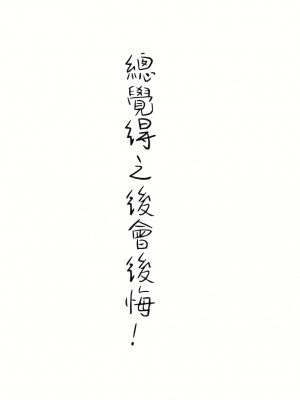 總覺得之後會後悔!